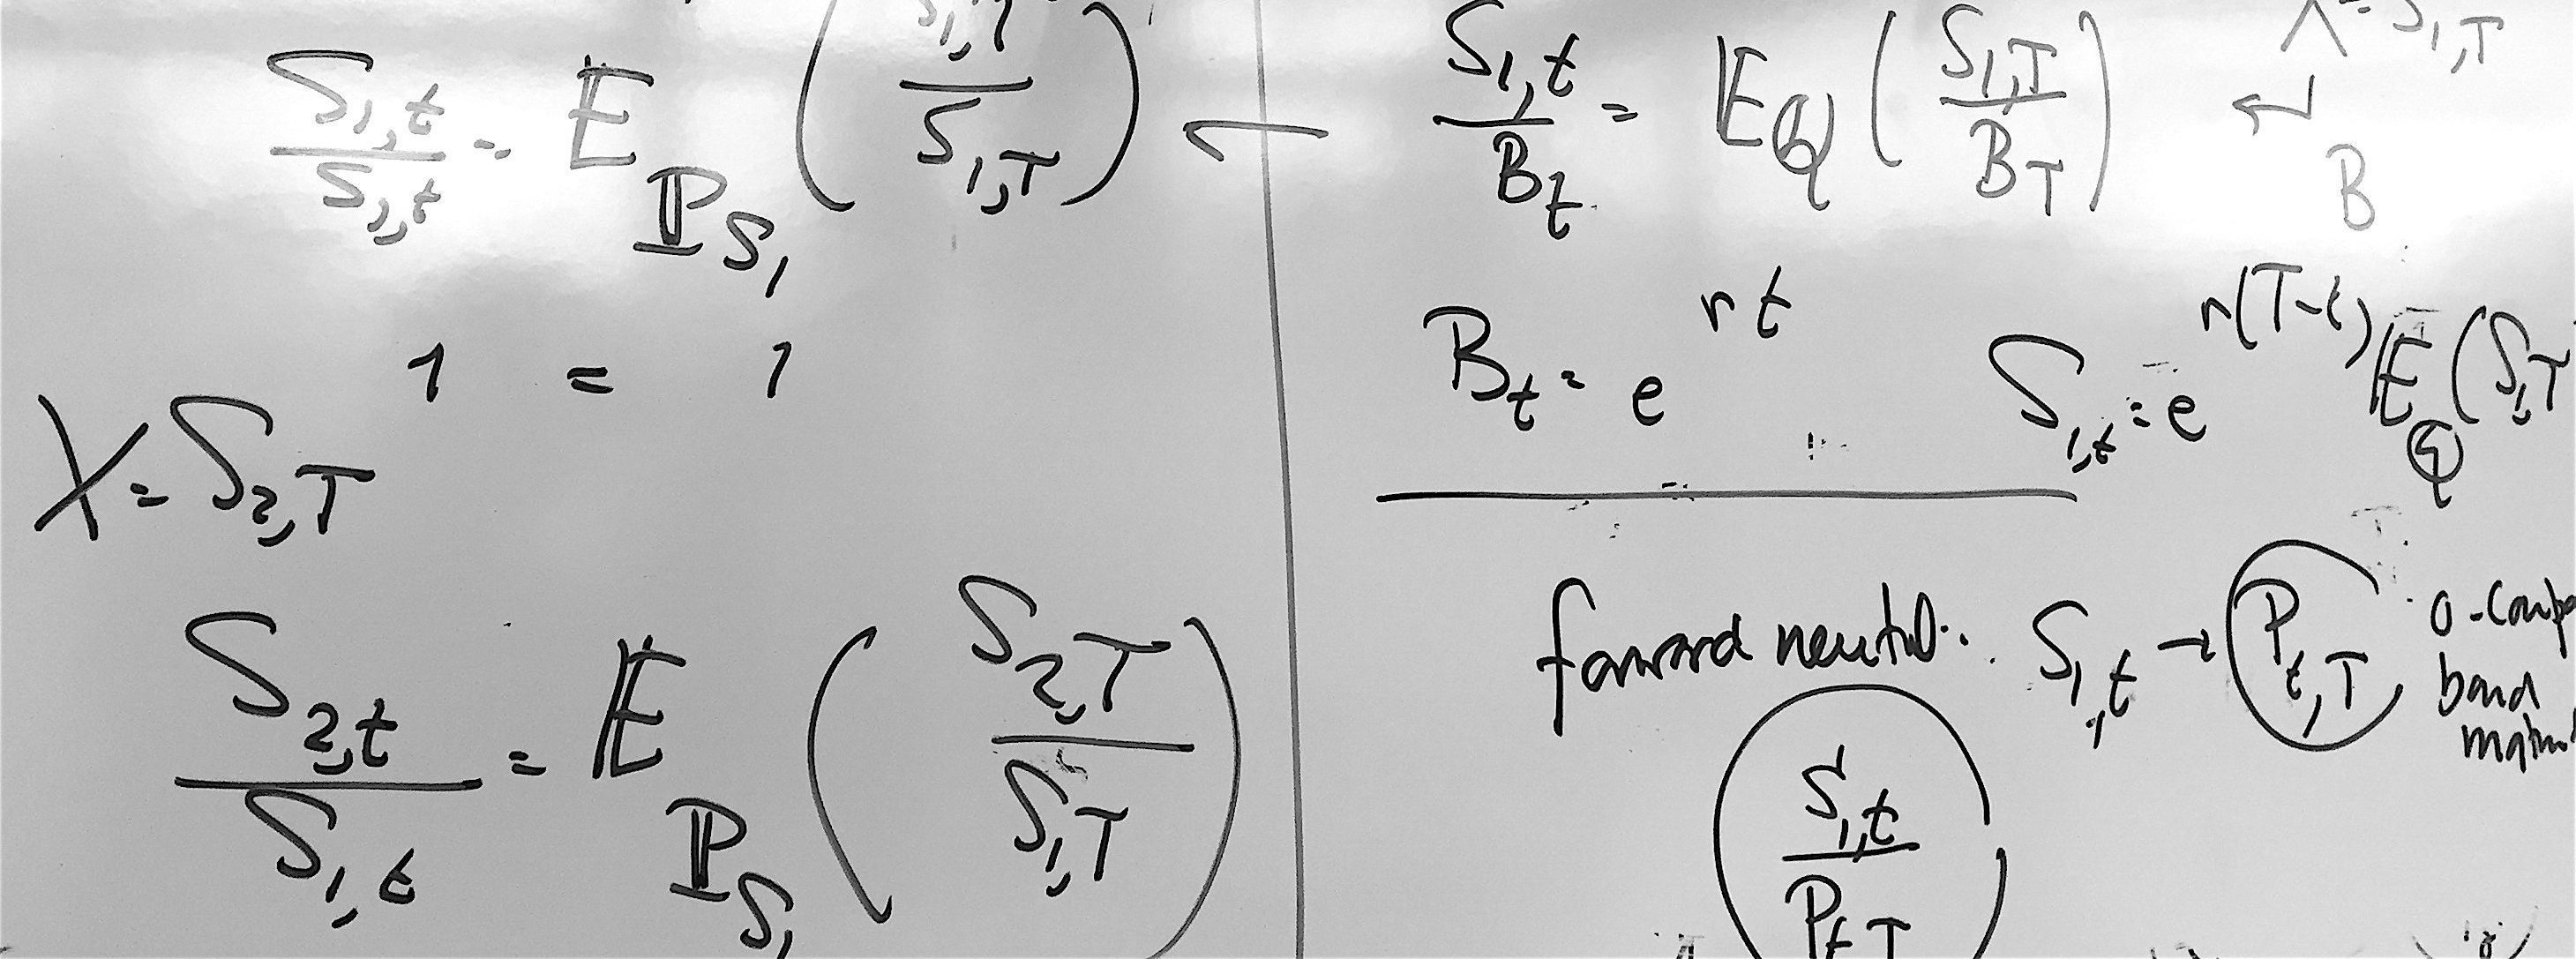 S₁,t / S₁,t = E_P_S₁ ( S₁,T / S₁,T )
1 = 1
X = S₂,T
S₂,t / S₁,t = E_P_S₁ ( S₂,T / S₁,T )
S₁,t / B_t = E_Q ( S₁,T / B_T ) ← X = S₁,T
B
B_t = e^rt S₁,t = e^r(T-t) E_Q ( S₁,T
forward neutral: S₁,t → P_t,T 0-coup
bond
S₁,t / P_t,T